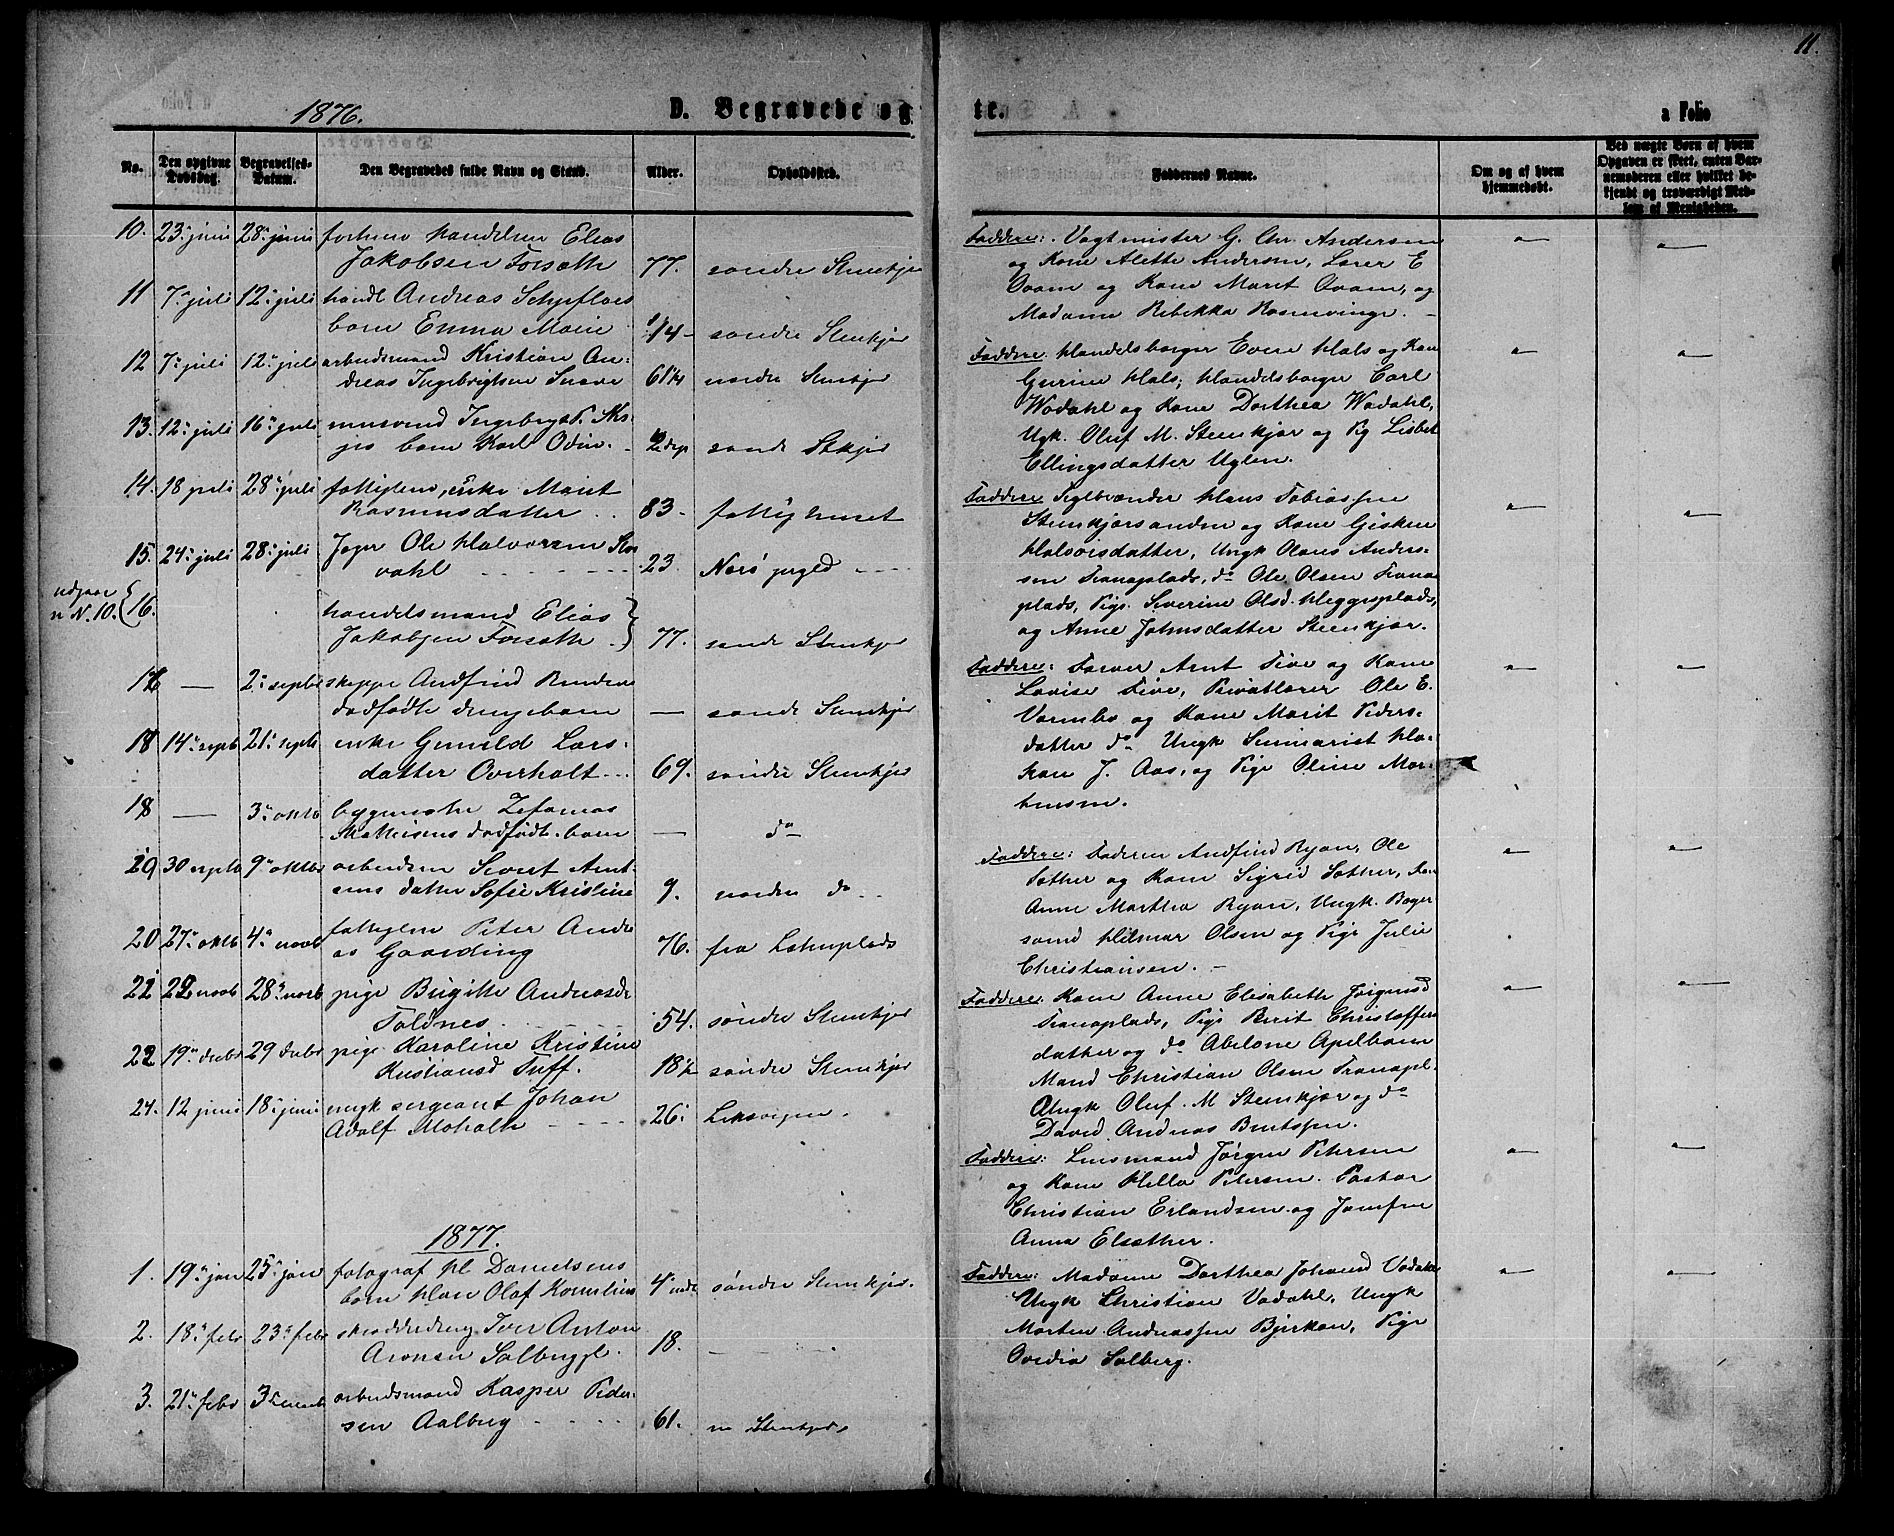 1876.
D. Begravede og
No.
Den opgivne Dødsdag.
Begravelses-Datum.
Den Begravedes fulde Navn og Stand.
Alder.
Opholdssted.
10. 23 juni 28 juni forhenv handelsm Elias
Jakobsen Forsæth 77. søndre Stenkjer
11 7 juli 12 juli handl Andreas
barn Emma Marie 1/4 søndre Stenkjer
12 7 juli 12 juli arbeidsmand Kristian An-
dreas Ingebrigtsen 61 nordre Stenkjer
13. 12 juli 16 juli
barn Karl Odin. søndre Stkjer
14. 18 juli 28 juli fattiglem, enke Marit
Rasmusdatter 83. fattighuset
15. 24 juli 28 juli Ole Halvorsen
vahl 23. Nærø prgld
udgaar
N. 10. 16. handelsmand Elias
Jakobsen Forsæth 77. søndre Stenkjer
17 — 2 septbr Andfind
dødfødte drengebarn — søndre Stenkjer
18 14 septb 21 septb enke Gunild Lars-
datter Overholt 69. søndre Stenkjer
18 — 3 oktb Zefanias
Mathisens dødfødt barn — do
19 30 septb 9 oktbr arbeidsm Sivert Arnt-
sens datter Sofie Kristine 9. nordre do
20 27 oktb 4 novb fattiglem Peter Andre
as Gaarding 76. fra
21 22 novb 28 novb pige Birgitte Andreasdr
Foldnes. 54. søndre Stenkjer
22 19 decbr 29 decbr pige Karoline Kristine
Kristiansd Tuff. 18 søndre Stenkjer
24. 12 juni 18 juni ungk sergeant Johan
Adolf Moholth 26. Leksvigen.
1877.
1. 19 jan 25 jan fotograf Danielsens
barn Olaf Kornelius 4 søndre Stenkjer.
2. 18 febr 23 febr Iver Anton
Aronsen 18. —
3. 21 febr 3 arbeidsmand Kasper Peder-
sen Aalberg 61. n Stenkjer
11.
te.
a Folio
Faddernes Navne.
Om og af hvem hjemmedøbt.
Ved uægte Børn af hvem Opgaven er skeet, enten Barnemoderen eller hvilket bekjendt og troværdigt Medlem af Menigheden.
Faddere: Vagtmister G. Chr. Andersen
og Kone Alette Andersen, Lærer E
Qvam og Kone Marit Qvam, og
Madame Rebekka Rosenvinge.
Faddere: Handelsborger Even Hals og Kone
Gurine Hals, Handelsborger Carl
Wodahl og Kone Dorthea Wodahl,
Ungk. Oluf M. Steenkjær og Pg Lisbet
Ellingsdatter Uglen.
Faddere Teglbrænder Hans Tobiassen
Steenkjærsanden og Kone Gisken
Halvorsdatter, Ungk Olaus Anders-
sen Tranaplads, do Ole Olsen Trana
plads, Pige Severine Olsd. Heggesplads,
og Anne Johnsdatter Steenkjær.
Faddere: Farver Arnt Five og Kone
Lovise Five, Privatlærer Ole E.
Varmbo og Kone Marit Peders-
datter do Ungk Seminarist Ha-
kon J. Aas, og Pige Oline Mor-
tensen.
Faddere: Faderen Andfind Ryan, Ole
Sæther og Kone Sigrid Sæther, Kone
Anne Martha Ryan, Ungk. Bager
svend Hilmar Olsen og Pige Julie
Christiansen.
Faddere: Kone Anne Elisabeth Jørgensd
Tranaplads, Pige Berit Christoffers
datter og do Abelone Apelbom
Mand Christian Olsen Tranapl.
Ungk Oluf M Steenkjær og do
David Andreas Berntssen.
Faddere: Lensmand Jørgen Petersen
og Kone Hella Petersen. Pastor
Christian Erlandsen og Jomfru
Anna Elsæther.
Faddere: Madame Dorthea Johansd Vodahl
Ungk Christian Vodahl, Ungk
Morten Andreassen Bjerkan, Pige
Ovedia Solberg.